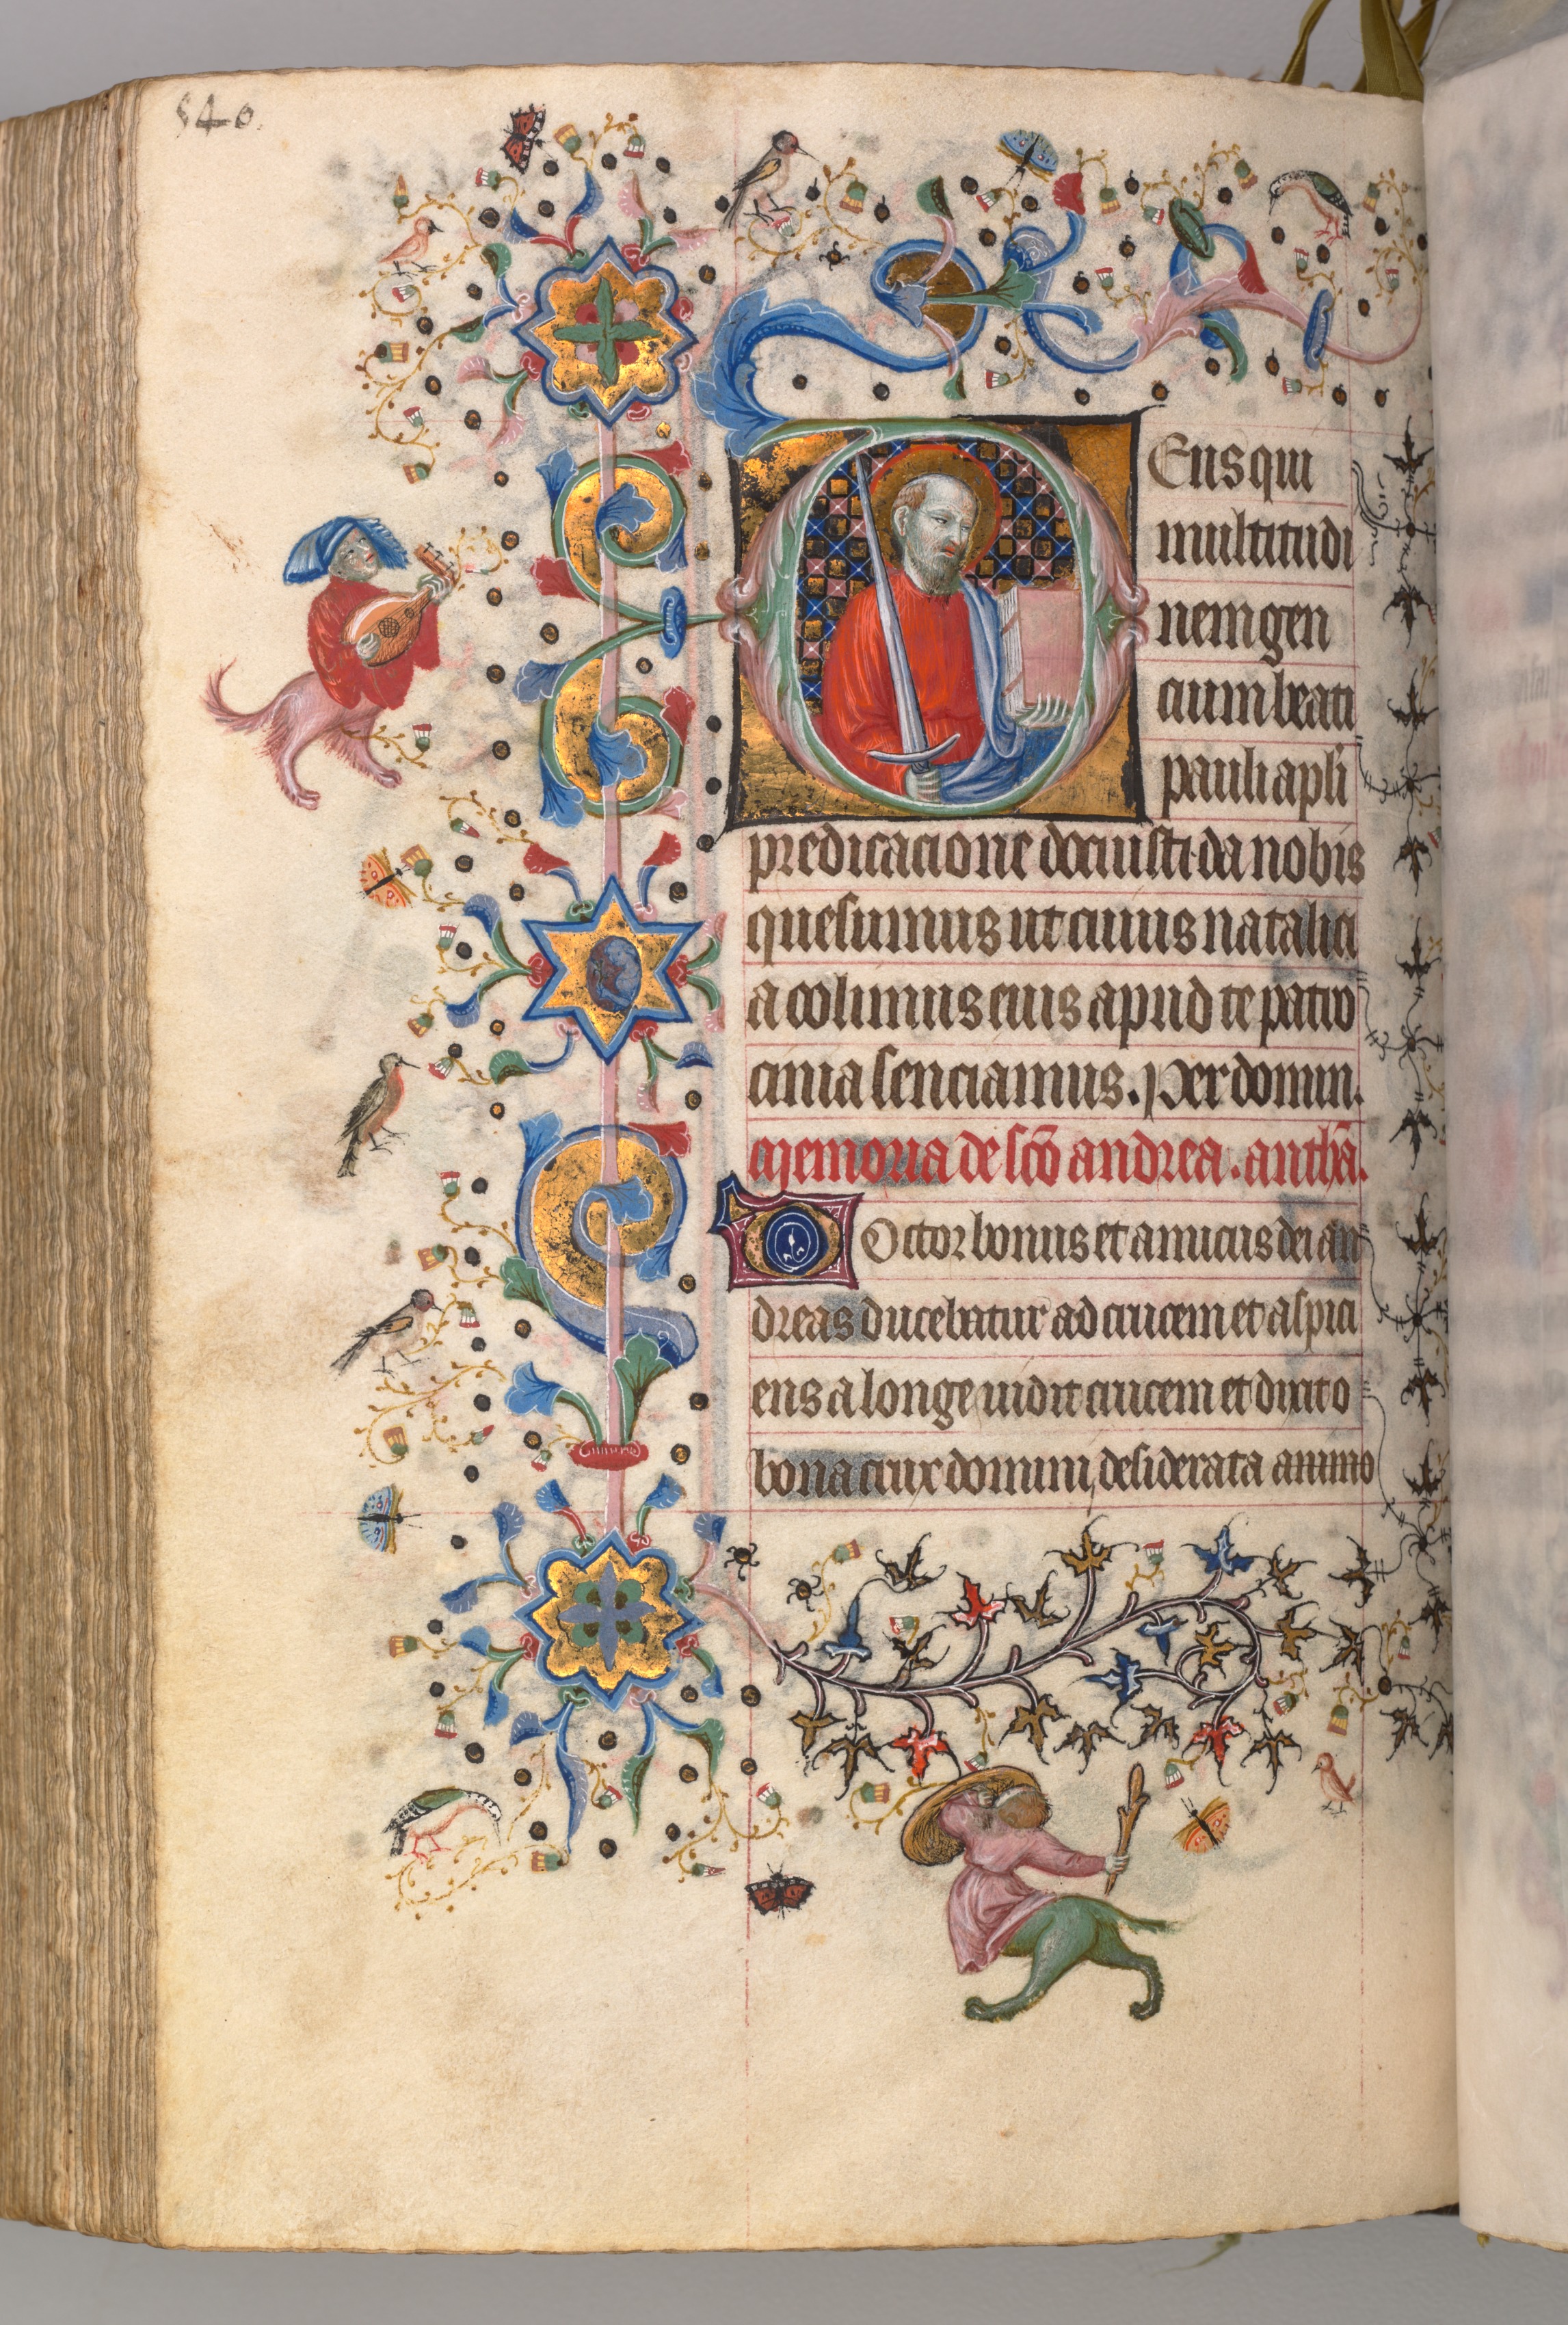 540.
Deus qui
multitudi
nem gen
cium beati
pauli apl̄i
predicacione docuisti da nobis
quesumus ut cuius natalicia
a colimus eius apud te patro
cinia senciamus. Per domin.
Memoria de sc̄o andrea. anth̄a.
Doctor bonus et amicus dei an
dreas ducebatur ad crucem et aspici
ens a longe uidit crucem et dixit o
bona crux domini desiderata animo